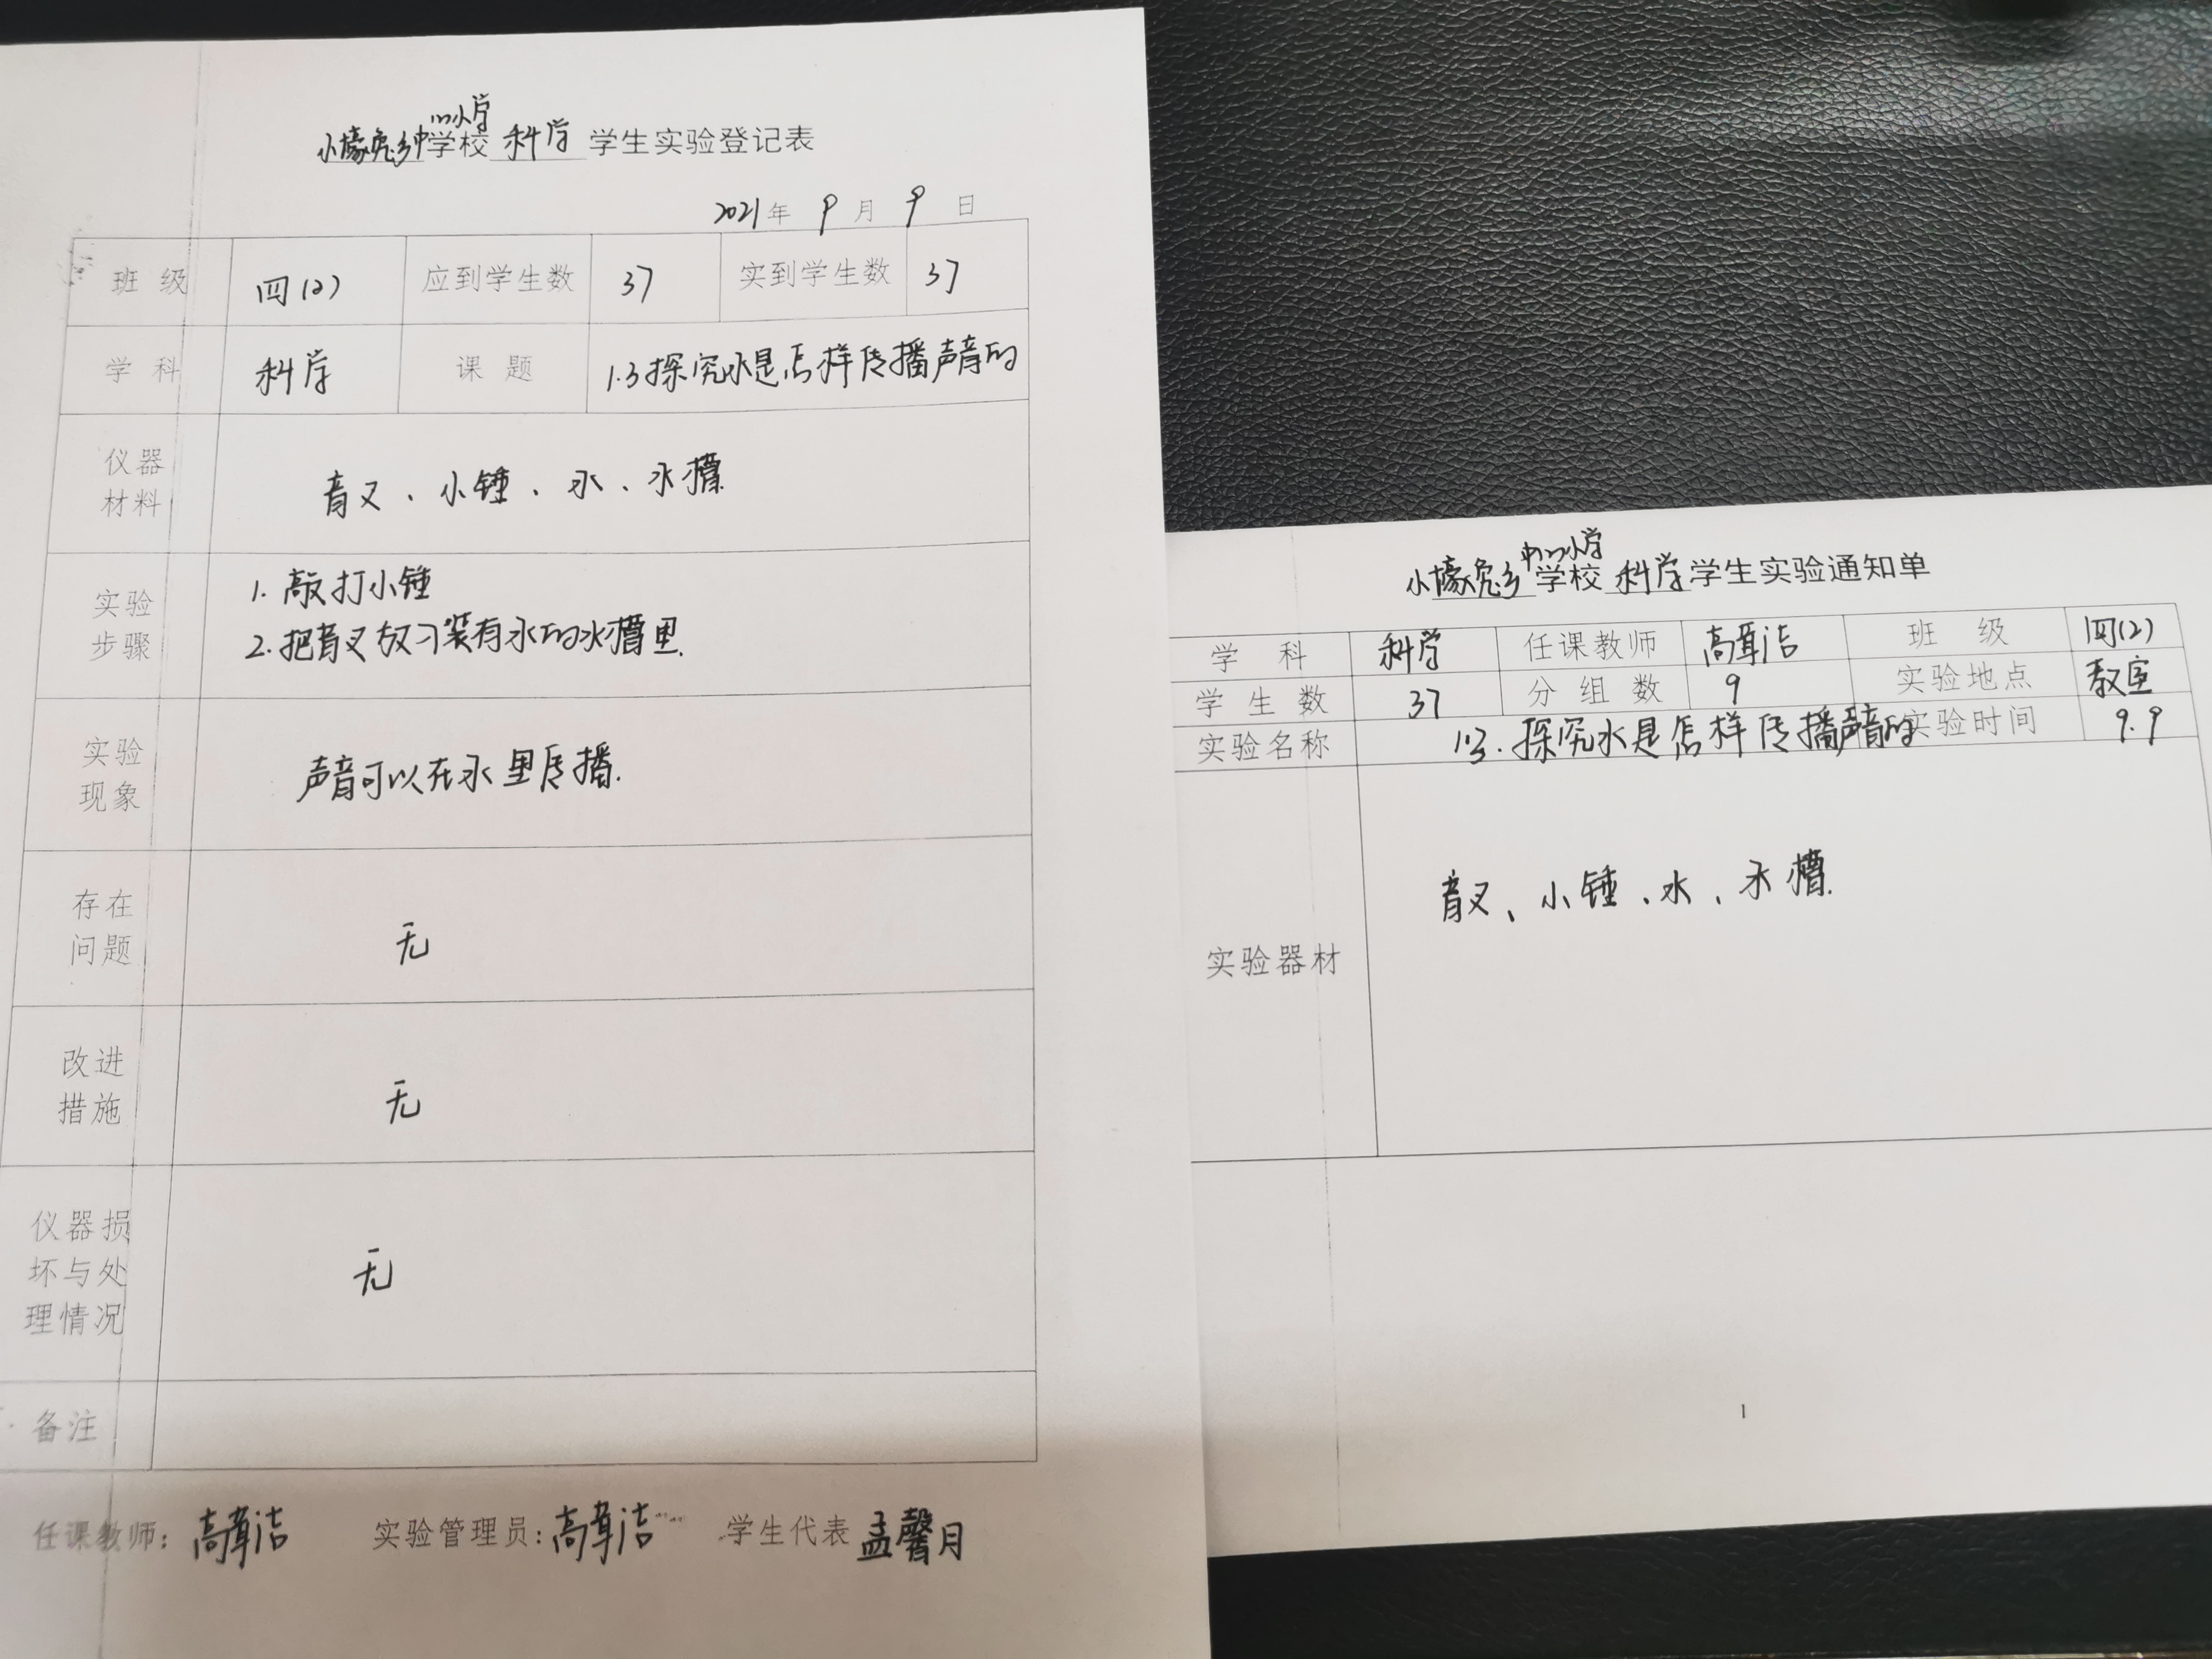 小壕兔乡中心小学学校 科学 学生实验登记表
2021年 9月 9日
班 级 四(2) 应到学生数 37 实到学生数 37
学 科 科学 课 题 1.3探究水是怎样传播声音的
仪器
材料
音叉、小锤、水、水槽.
实验
步骤
1. 敲打小锤
2. 把音叉放习装有水的水槽里.
实验
现象
声音可以在水里传播.
存在
问题
无
改进
措施
无
仪器损
坏与处
理情况
无
备注
任课教师: 高 洁 实验管理员: 高 洁 学生代表 孟馨月
小壕兔乡中心小学学校 科学 学生实验通知单
学 科 科学 任课教师 高 洁 班 级 四(2)
学 生 数 37 分 组 数 9 实验地点 教室
实验名称 1.3.探究水是怎样传播声音的 实验时间 9.9
实验器材
音叉、小锤、水、水槽.
1